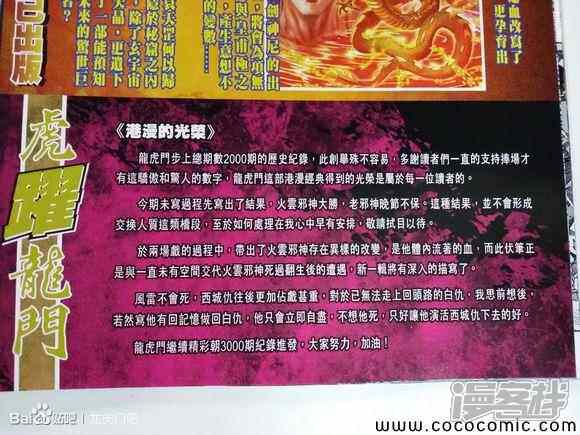 血改寫了
更孕育出
創神尼的出
將會為這無
與皇甫極之
產生意想不
的變數……
天罡何以歸
隱於秘窟之內
，除了玄宇宙
大晶，更遺下
了一部能預知
未來的驚世巨
出版
虎躍龍門
《港漫的光榮》
龍虎門步上總期數2000期的歷史紀錄，此創舉殊不容易，多謝讀者們一直的支持捧場才
有這驕傲和驚人的數字，龍虎門這部港漫經典得到的光榮是屬於每一位讀者的。
今期未寫過程先寫出了結果，火雲邪神大勝，老邪神晚節不保。這種結果，並不會形成
交換人質這類橋段，至於如何處理在我心中早有安排，敬請拭目以待。
於兩場戲的過程中，帶出了火雲邪神存在異樣的改變，是他體內流著的血，而此伏筆正
是與一直未有空間交代火雲邪神死過翻生後的遭遇，新一輯將有深入的描寫了。
風雷不會死，西城仇往後更加佔戲甚重，對於已無法走上回頭路的白仇，我思前想後，
若然寫他有回記憶做回白仇，他只會立即自盡，不想他死，只好讓他演活西城仇下去的好。
龍虎門繼續精彩朝3000期紀錄進發，大家努力，加油！
Bai 贴吧 | 龙虎门吧
漫客栈
www.cococomic.com